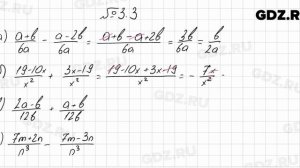 №3.3
GDZ.RU
а) (a+b)/6a - (a-2b)/6a = (a+b-a+2b)/6a = 3b/6a = b/2a
б) (19-10x)/x² + (3x-19)/x² = (19-10x+3x-19)/x² = -7x/x²
(2a-b)/12b + (a+b)/12b
(7m+2n)/n³ - (7m-3n)/n³
GDZ.RU